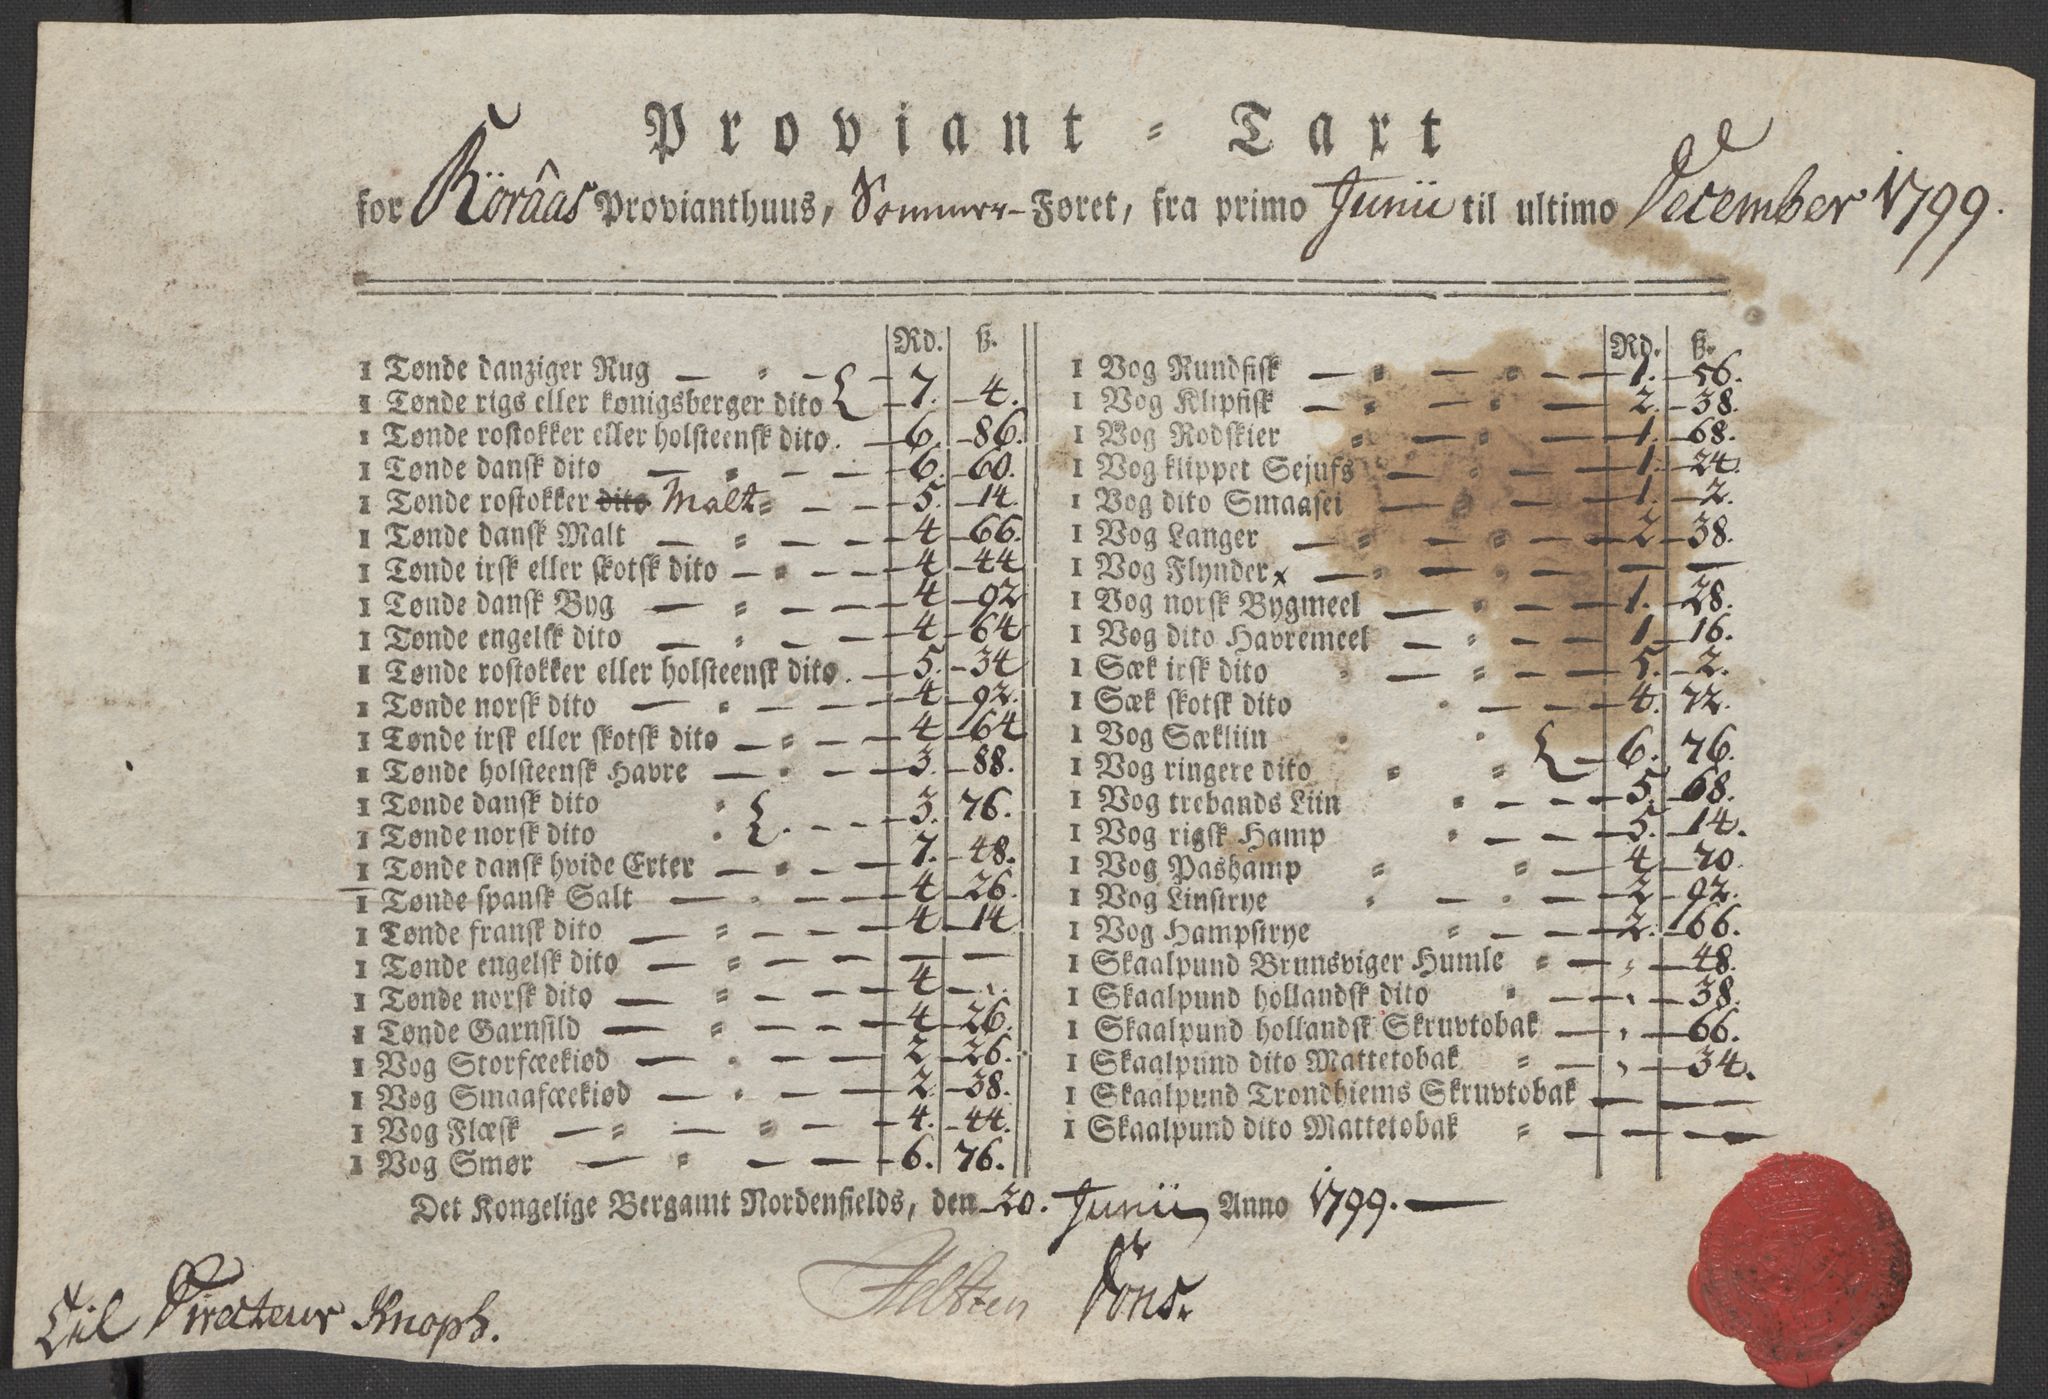 Proviant-Taxt
for Röraas Provianthuus, Sommer-Føret, fra primo Junii til ultimo December 1799.
Rd. ß.
1 Tønde danziger Rug
1 Tønde rigs eller kønigsberger dito 7. 4.
1 Tønde rostokker eller holsteensk dito. 6. 86.
1 Tønde dansk dito 6. 60.
1 Tønde rostokker dito Malt 5. 14.
1 Tønde dansk Malt 4 66.
1 Tønde irsk eller skotsk dito 4 44
1 Tønde dansk Byg 4 92
1 Tønde engelsk dito 4 64
1 Tønde rostokker eller holsteensk dito. 5. 34
1 Tønde norsk dito 4 92.
1 Tønde irsk eller skotsk dito 4 64
1 Tønde holsteensk Havre 3. 88.
1 Tønde dansk dito
1 Tønde norsk dito 3. 76.
1 Tønde dansk hvide Erter 7. 48.
1 Tønde spansk Salt 4 26.
1 Tønde fransk dito 4 14
1 Tønde engelsk dito — —
1 Tønde norsk dito 4 —
1 Tønde Garnsild 4 26.
1 Vog Storfæekiød 2 26.
1 Vog Smaafæekiød 2 38.
1 Vog Flæsk 4. 44.
1 Vog Smør 6. 76.
Rd. ß.
1 Vog Rundfisk 1. 56.
1 Vog Klipfisk 2. 38.
1 Vog Rodskier 1. 68.
1 Vog klippet Sejufs 1. 24.
1 Vog dito Smaasei 1. 2.
1 Vog Langer 2 38.
1 Vog Flynder x — —
1 Vog norsk Bygmeel 1. 28.
1 Vog dito Havremeel 1 16.
1 Sæk irsk dito 5. 2.
1 Sæk skotsk dito 4. 72.
1 Vog Sækliin
1 Vog ringere dito 6. 76.
1 Vog trebands Liin 5. 68.
1 Vog rigsk Hamp 5. 14.
1 Vog Pashamp 4 70.
1 Vog Linstrye 2 92.
1 Vog Hampstrye 2. 66.
1 Skaalpund Brunsviger Humle 48.
1 Skaalpund hollandsk dito 38.
1 Skaalpund hollandsk Skruvtobak 66.
1 Skaalpund dito Mattetobak 34.
1 Skaalpund Trondhiems Skruvtobak — —
1 Skaalpund dito Mattetobak — —
Det Kongelige Bergamt Nordenfields, den 20. Junii Anno 1799.
Til Directeur Knoph.